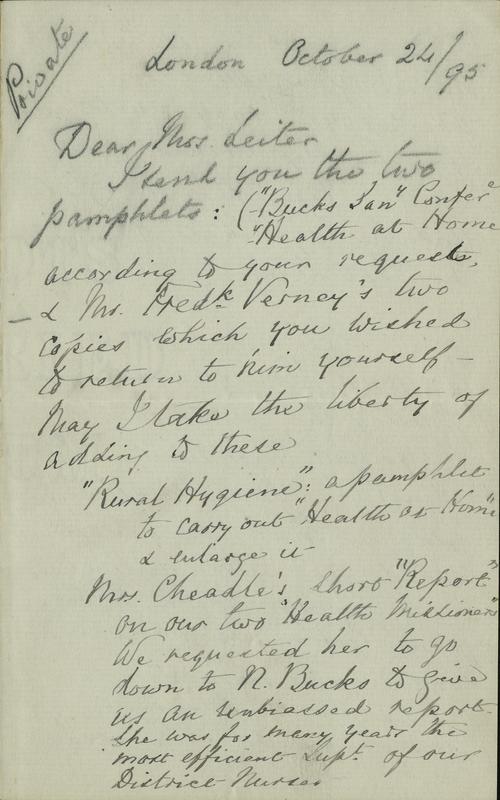 Private
London October 24/95
Dear Mrs. Leiter
I send you the two
pamphlets: ("Bucks San" Confer^ce
"Health at Home
according to your request,
- & Mr. Fred^k Verney's two
copies which you wished
to return to him yourself -
May I take the liberty of
adding to these
"Rural Hygiene": a pamphlet
to carry out "Health at Home"
& enlarge it
Mrs. Cheadle's short "Report"
on our two "Health Missioners"
We requested her to go
down to N. Bucks to give
us an unbiassed report.
She was for many years the
most efficient Supt. of our
District Nurses